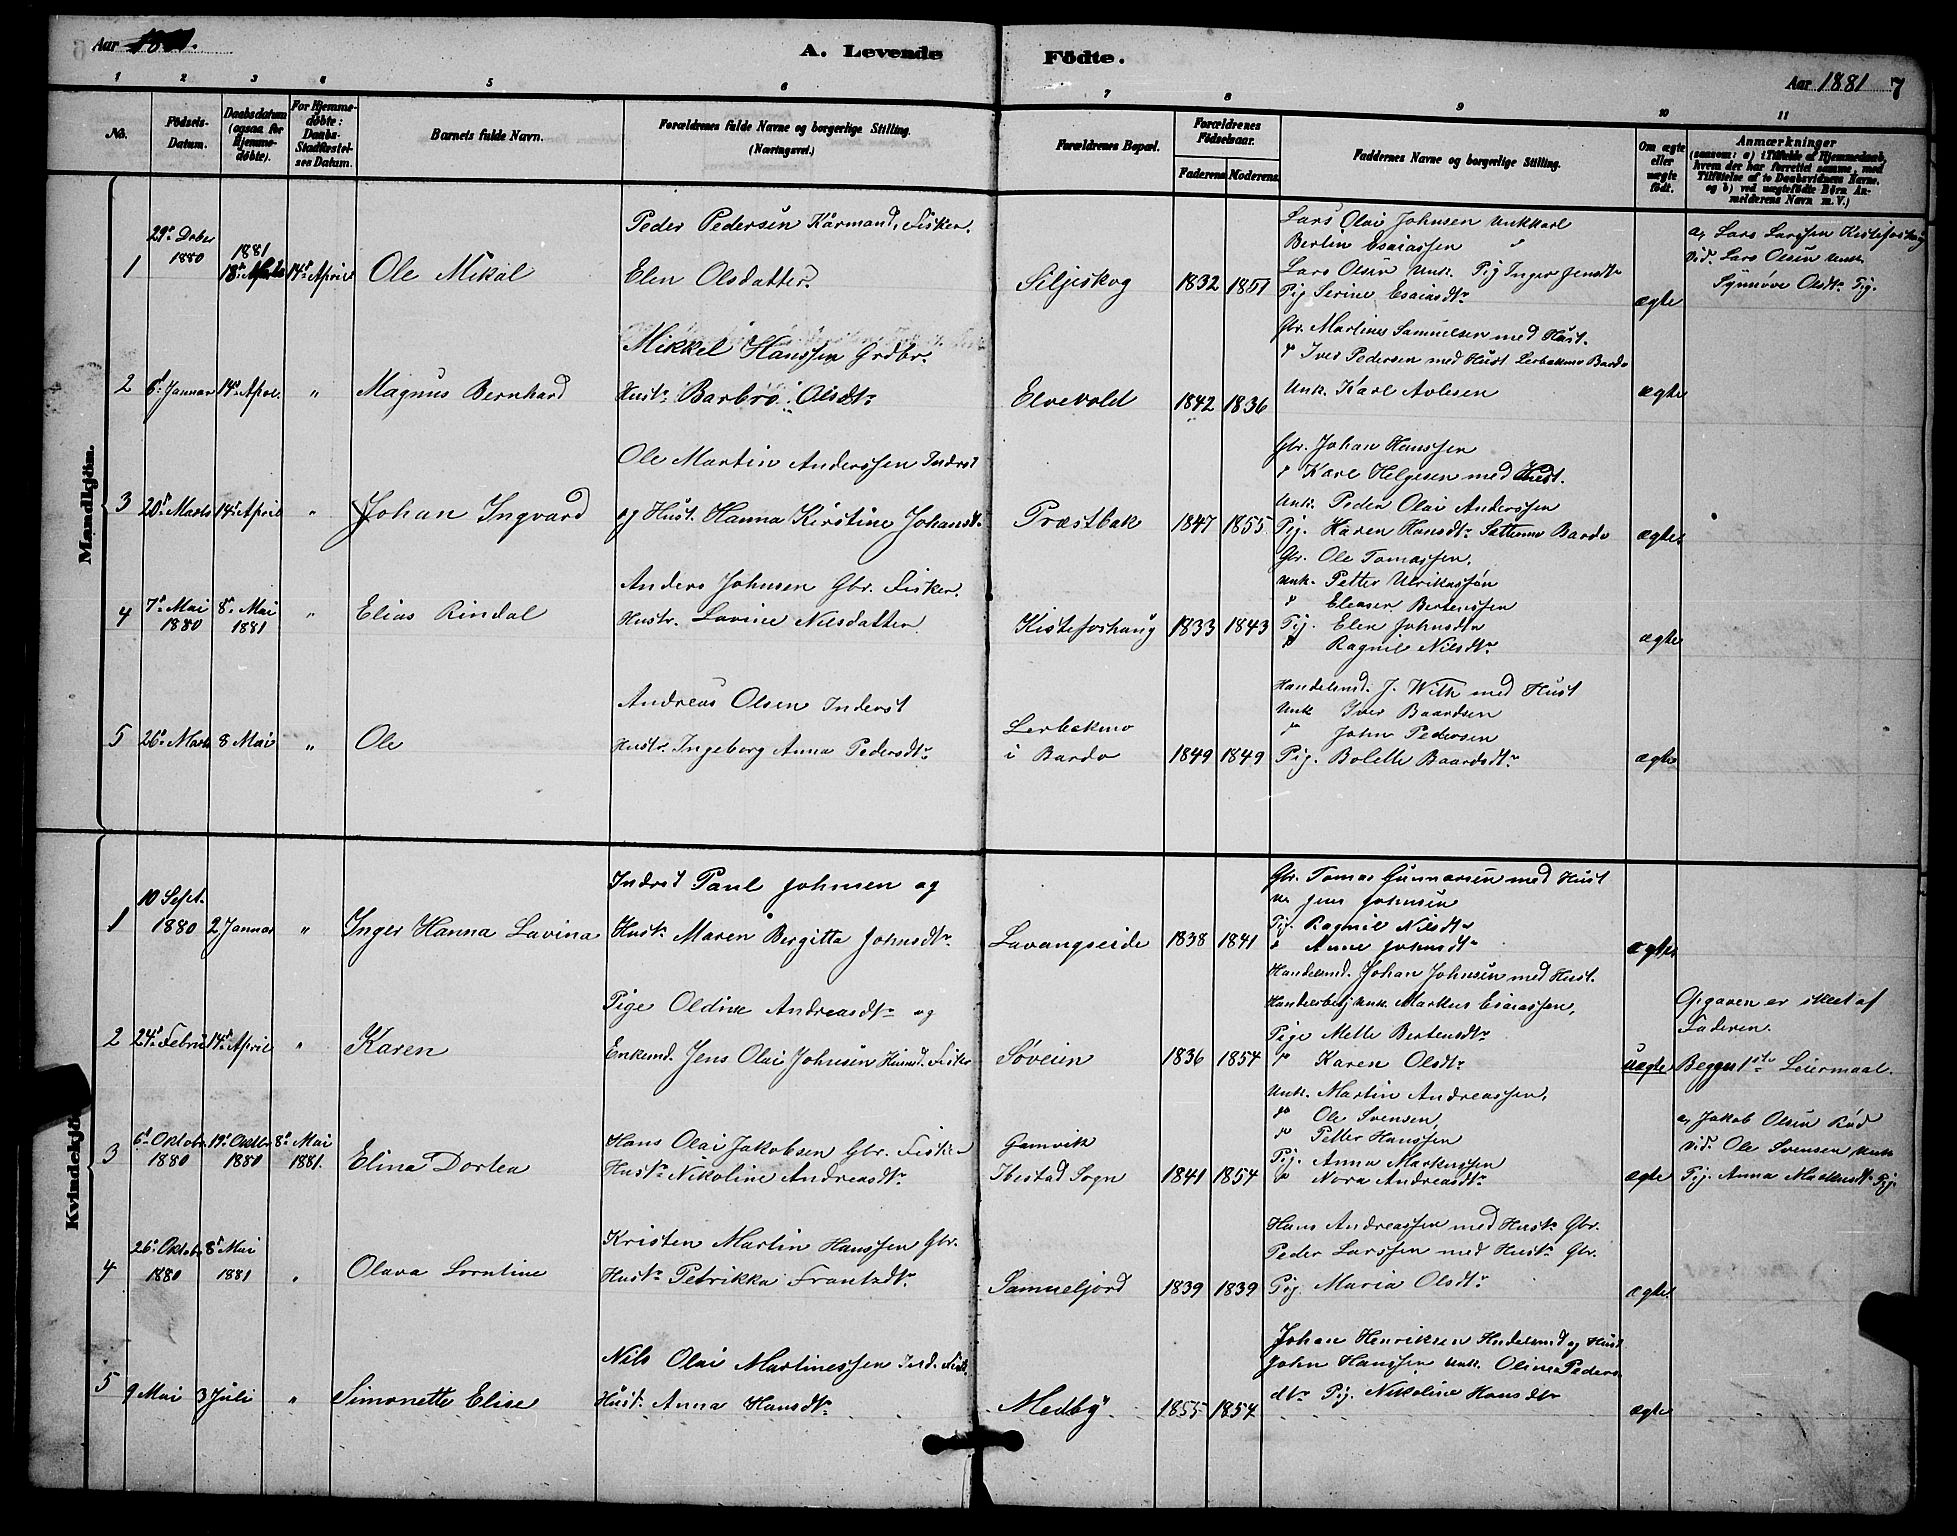 Aar 1881.
A. Levende Födte.
Aar 1881 7
1 2 3 4 5 6 7 8 9 10 11
No.
Födsels-Datum.
Daabsdatum (ogsaa for Hjemmedøbte).
For Hjemmedøbte: Daabs-Stadfæstelses Datum.
Barnets fulde Navn.
Forældrenes fulde Navne og borgerlige Stilling. (Næringsvei.)
Forældrenes Bopæl.
Forældrenes Födselsaar. Faderens Moderens.
Faddernes Navne og borgerlige Stilling.
Om ægte eller uægte födt.
Anmærkninger (saasom: a) i Tilfælde af Hjemmedaab, hvem der har forrettet samme, med Tilföielse af to Daabsvidners Navne, og b) ved uægtefödte Börn Anmelderens Navn m. V.)
Mandkjön.
1
29de Dcbr 1880
1881 18de Marts
14de April
Ole Mikal
Peder Pedersen Kårmand, Fisker.
Elen Olsdatter
Seljeskog
1832 1851
Lars Olai Johnsen Unkkarl
Bertin Esaiassen "
Lars Olsen Unk. Pig Inger Jensdtr
Pig Serine Esaiasdtr
ægte
a, Lars Larssen Kistefoshaug
Vid. Lars Olsen Unk.
Synnøve Olsdtr Pig.
2
6te Januar
14de April
"
Magnus Bernhard
Mikkel Hanssen Grdbr.
Hustr. Barbro Olsdtr
Elvevold
1842 1836
Gbr. Martines Samuelsen med Hust.
" Iver Pedersen med Hust Lerbekmo Bardo
Unk. Karl Avlesen
ægte
3
20de Marts
14de April
"
Johan Ingvard
Ole Martin Anderssen Inderst
og Hust. Hanna Kirstine Johansdt.
Præstbak
1847 1855
Gbr. Johan Hanssen
" Karl Helgesen med Hust.
Unk. Peder Olai Anderssen
Pig. Karen Hansdtr Sættermo Bardo
ægte
4
7de Mai 1880
8de Mai 1881
"
Elias Rindal
Anders Johnsen Gbr. Fisker.
Hustr. Lavine Nilsdatter
Kistefoshaug
1833 1843
Gbr. Ole Tomassen,
Unk. Petter Ulrikassøn
" Eleaser Bertenssen
Pig. Elen Johnsdtr
" Ragnil Nilsdtr
ægte
5
26de Marts
8 Mai
"
Ole
Andreas Olsen Inderst
Hustr. Ingeborg Anna Pedersdtr
Lerbekmo
i Bardo
1849 1849
Handelsmd. J. With med Hust
Unk Iver Baardsen
" John Pedersen
Pig. Bolette Baardsdtr
ægte
Kvindekjön.
1
10 Sept. 1880
2 Januar
"
Inger Hanna Lavina
Inderst Paul Johnsen og
Hustr. Maren Bergitta Johnsdtr
Lavangseide
1838 1841
Gbr. Tomas Gunnarsen med Hust
Un. Jens Johnsen
Pig. Ragnil Nilsdtr
" Anne Johnsdtr
ægte
2
24de Febru
14de April
"
Karen
Pige Oldine Andreasdtr og
Enkemd. Jens Olai Johnsen Huusmd. Fisker
Søveien
1836 1854
Handelsmd. Johan Johnsen med Hust.
Handelsbetj. Unk. Markus Esaiassen,
Pige Mette Bertensdtr
" Karen Olsdtr
uægte
Opgaven er skeet af
Faderen.
Begges 1ste Leiermaal.
3
6te Oktobr 1880
19de Oktbr 1880
8de Mai 1881.
Elina Dortea
Hans Olai Jakobsen Gbr. Fisker
Hustr Nikoline Andreasdtr
Gamvik
Ibestad Sogn
1841 1854
Unk. Martin Andreassen,
" Ole Svensen,
" Petter Hanssen
Pig. Anna Markussen
" Nora Andreasdtr
ægte
a, Jakob Olsen Rød
Vid. Ole Svensen Unk
Pig. Anna Markusdtr Pig.
4
26de Oktobr 1880
8de Mai 1881
"
Olava Lorntine
Kristen Martin Hanssen Gbr.
Hustr Petrikka Frantzdtr
Samueljord
1839 1839
Hans Andreassen med Hustr Gbr.
Peder Larssen med Hustr Gbr.
Pig. Maria Olsdtr
ægte
5
9 Mai
3 Juli
"
Simonette Elise
Nils Olai Martinessen Ind. Fisk.
Hust. Anna Hansdtr
Medby
1855 1854
Johan Henriksen Hndelsmd og Hust
John Hanssen Unk. Olinea Peders
dtr Pig. Nikoline Hansdtr
ægte